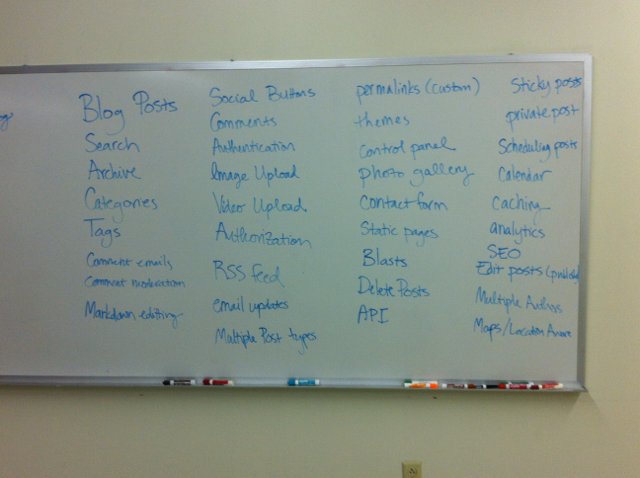 Blog Posts
Search
Archive
Categories
Tags
Comment emails
Comment moderation
Markdown editing
Social Buttons
Comments
Authentication
Image Upload
Video Upload
Authorization
RSS feed
email updates
Multiple Post types
permalinks (custom)
themes
control panel
photo gallery
contact form
Static pages
Blasts
Delete Posts
API
Sticky posts
private post
Scheduling posts
Calendar
caching
analytics
SEO
Edit posts (published)
Multiple Authors
Maps/Location Aware